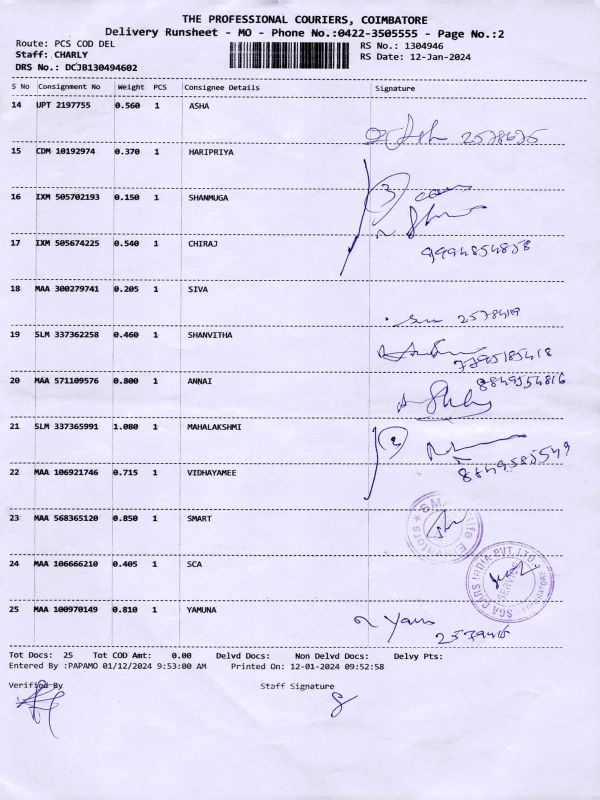 THE PROFESSIONAL COURIERS, COIMBATORE
Delivery Runsheet - MO - Phone No.:0422-3505555 - Page No.:2
Route: PCS COD DEL RS No.: 1304946
Staff: CHARLY RS Date: 12-Jan-2024
DRS No.: DCJB130494602
S No Consignment No Weight PCS Consignee Details Signature
14 UPT 2197755 0.560 1 ASHA
15 CDM 10192974 0.370 1 HARIPRIYA
16 IXM 505702193 0.150 1 SHANMUGA
17 IXM 505674225 0.540 1 CHIRAJ
9994854858
18 MAA 300279741 0.205 1 SIVA
19 SLM 337362258 0.460 1 SHANVITHA
7795185418
20 MAA 571109576 0.800 1 ANNAI
21 SLM 337365991 1.080 1 MAHALAKSHMI
2
8849585549
22 MAA 106921746 0.715 1 VIDHAYAMEE
23 MAA 568365120 0.850 1 SMART
24 MAA 106666210 0.405 1 SCA
SGA CARS INDIA PVT. LTD.
25 MAA 100970149 0.810 1 YAMUNA
Tot Docs: 25 Tot COD Amt: 0.00 Delvd Docs: Non Delvd Docs: Delvy Pts:
Entered By :PAPAMO 01/12/2024 9:53:00 AM Printed On: 12-01-2024 09:52:58
Verified By Staff Signature